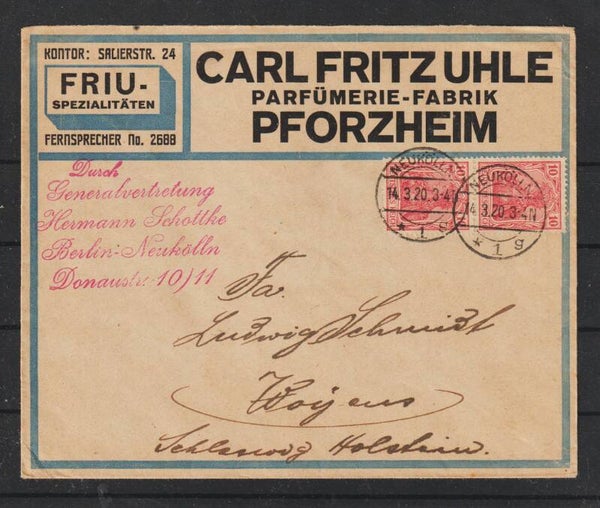 KONTOR: SALIERSTR. 24
FRIU-
SPEZIALITÄTEN
FERNSPRECHER No. 2688
CARL FRITZ UHLE
PARFÜMERIE-FABRIK
PFORZHEIM
Durch
Generalvertretung
Hermann Schottke
Berlin-Neukölln
Donaustr. 10/11
NEUKÖLLN
14.3.20.3-4N
* 1 g
NEUKÖLLN
14.3.20.3-4N
* 1 g
10
10
10
Fa.
Ludwig Schmidt
Woyens
Schleswig Holstein.